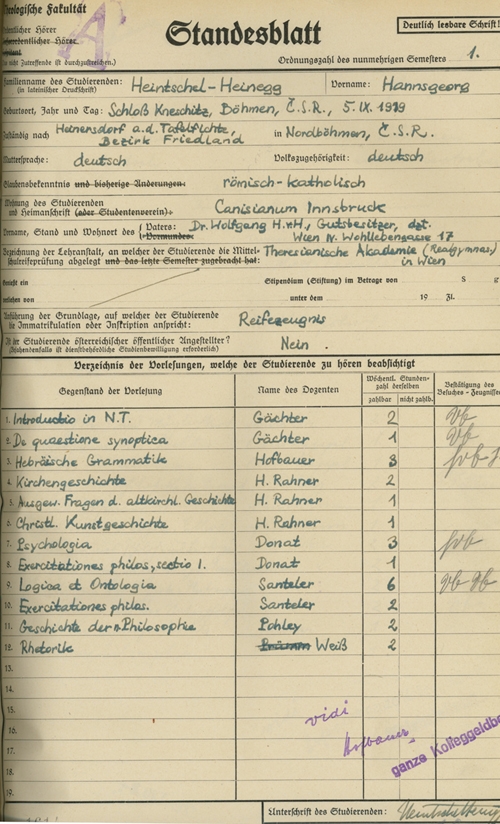 Theologische Fakultät
Ordentlicher Hörer
Außerordentlicher Hörer
A
(Das nicht Zutreffende ist durchzustreichen.)
Deutlich lesbare Schrift!
Standesblatt
Ordnungszahl des nunmehrigen Semesters 1.
Familienname des Studierenden: Heintschel-Heinegg Vorname: Hannsgeorg
(in lateinischer Druckschrift)
Geburtsort, Jahr und Tag: Schloß Kneschitz, Böhmen, Č.S.R., 5.IX.1919
Zuständig nach Heinersdorf a.d. Tafelfichte, Bezirk Friedland in Nordböhmen, Č.S.R.
Muttersprache: deutsch Volkszugehörigkeit: deutsch
Glaubensbekenntnis und bisherige Änderungen: römisch-katholisch
Wohnung des Studierenden
und Heimanschrift (oder Studentenverein): Canisianum Innsbruck
Vorname, Stand und Wohnort des Vaters: Dr. Wolfgang H.v.H., Gutsbesitzer, dzt.
Vormundes: Wien IV. Wohllebengasse 17
Bezeichnung der Lehranstalt, an welcher der Studierende die Mittel- Theresianische Akademie (Realgymnas.)
schulreifeprüfung abgelegt und das letzte Semester zugebracht hat: in Wien
Genießt ein Stipendium (Stiftung) im Betrage von S g
verliehen von unter dem 19 Zl.
Anführung der Grundlage, auf welcher der Studierende
die Immatrikulation oder Inskription anspricht: Reifezeugnis
Ist der Studierende österreichischer öffentlicher Angestellter? Nein.
(Bejahendenfalls ist dienstbehördliche Studienbewilligung erforderlich)
Verzeichnis der Vorlesungen, welche der Studierende zu hören beabsichtigt
Gegenstand der Vorlesung Name des Dozenten Wöchentl. Stundenzahl derselben Bestätigung des
zahlbar nicht zahlb. Besuches - Zeugnisse
1. Introductio in N.T. Gächter 2
2. De quaestione synoptica Gächter 1
3. Hebräische Grammatik Hofbauer 3
4. Kirchengeschichte H. Rahner 2
5. Ausgew. Fragen d. altkirchl. Geschichte H. Rahner 1
6. Christl. Kunstgeschichte H. Rahner 1
7. Psychologia Donat 3
8. Exercitationes philos., sectio I. Donat 1
9. Logica et Ontologia Santeler 6
10. Exercitationes philos. Santeler 2
11. Geschichte der Philosophie Pohley 2
12. Rhetorik Weiß 2
13.
14.
15.
16.
17.
18.
19.
vidi
Hofbauer
ganze Kolleggeldbe
Unterschrift des Studierenden: